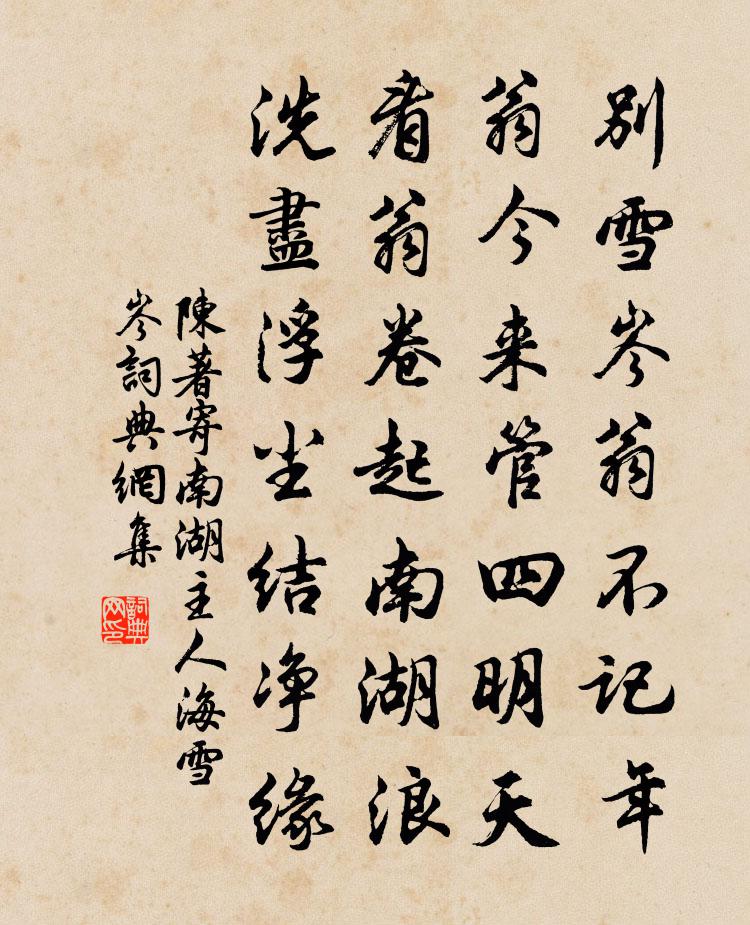 别雪岑翁不记年
翁今来管四明天
看翁卷起南湖浪
洗盡浮尘结净缘
陳著寄南湖主人海雪
岑詞典網集
詞典
网印